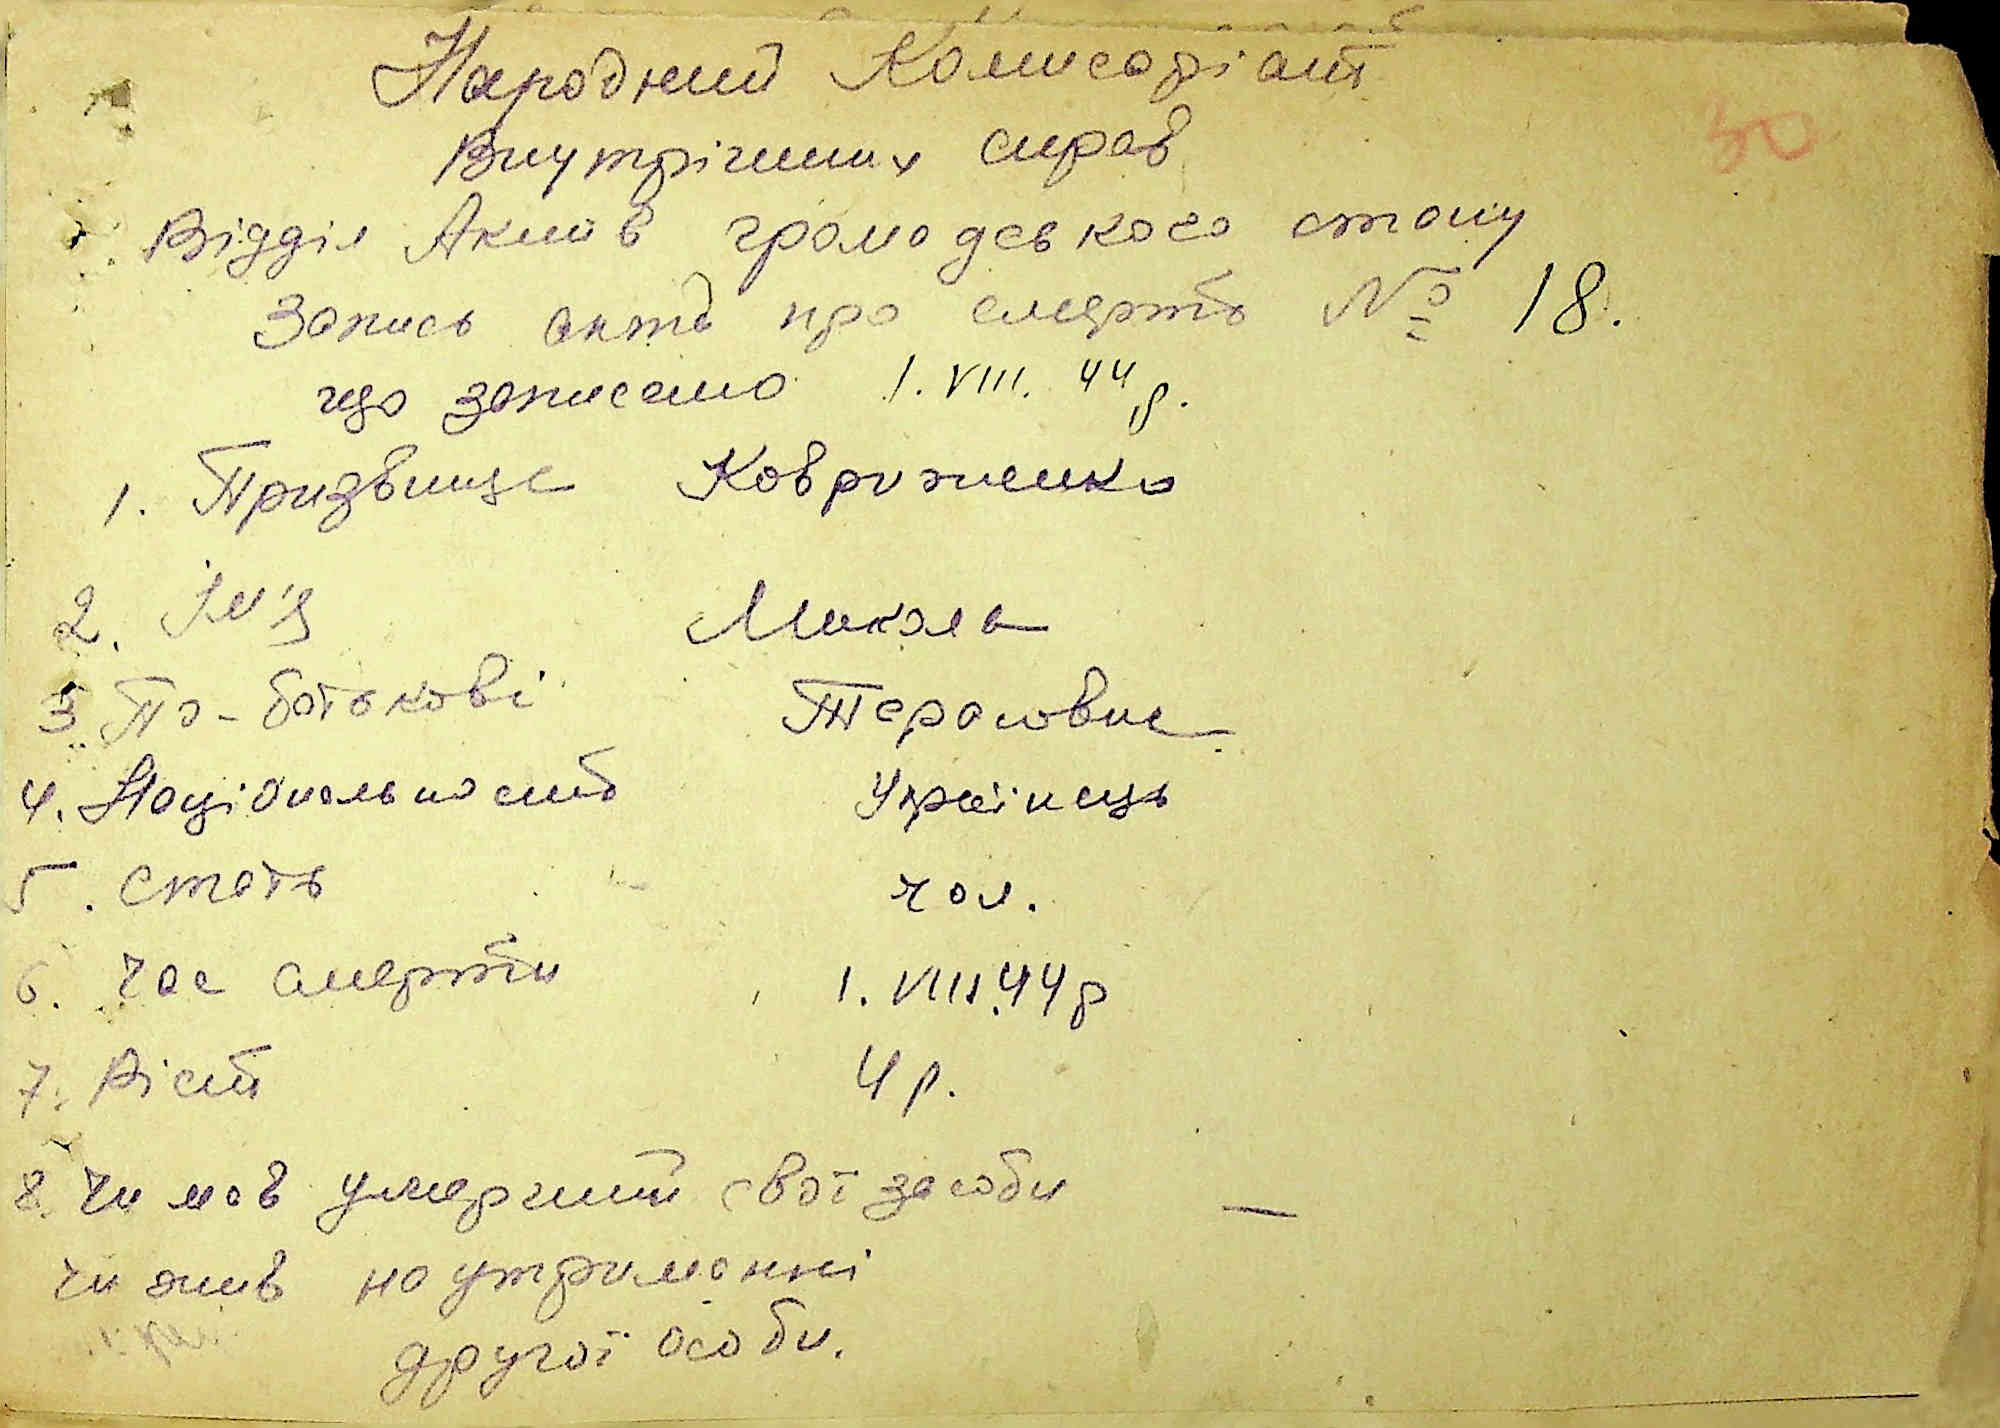 30
Народний Комисаріат
Внутрічнних справ
Відділ Актів громадського стану
Запись актів про смерть № 18.
що записано 1. VIII. 44 р.
1. Призвище Ковриженко
2. Ім'я Микола
3 По-батькові Тарасович
4. Національность Українець
5. Стать чол.
6. Час смерти 1. VIII. 44 р
7. Вічт 4 р.
8. Чи мав умерший свої засоби —
чи жив на утриманні
другої особи.